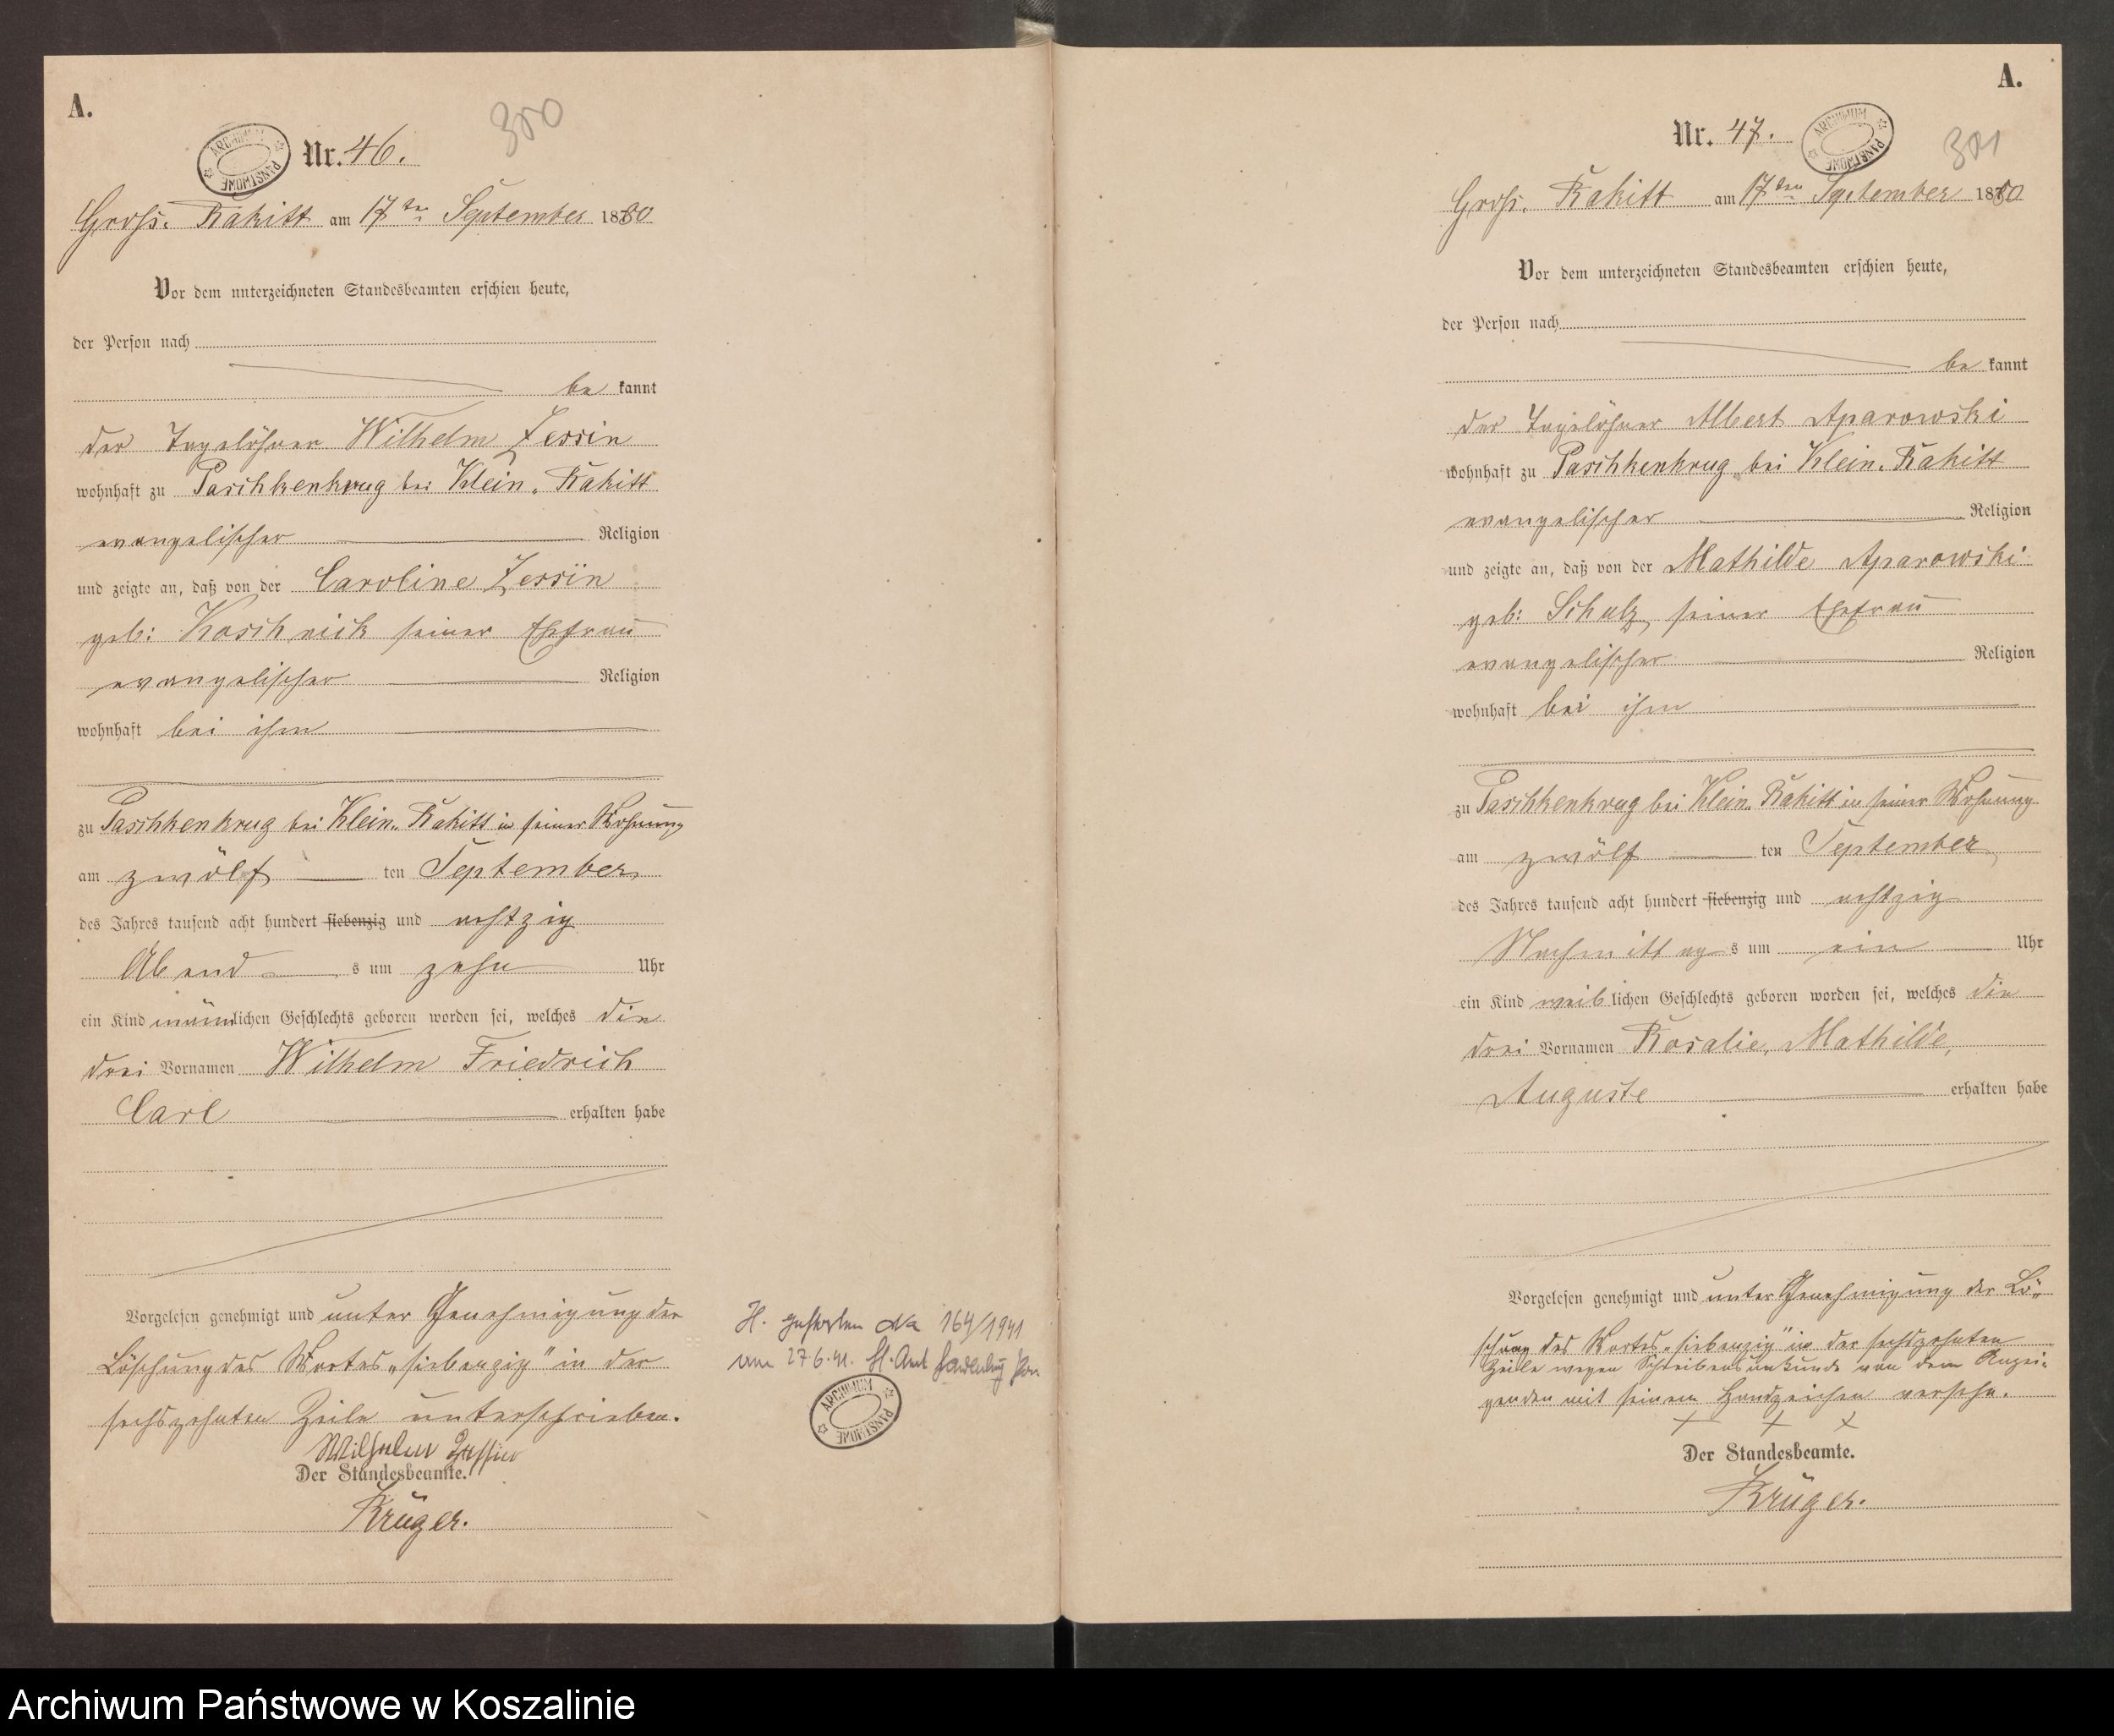 A.
300
ARCHIWUM PAŃSTWOWE
Nr. 46.
Gross. Rakitt am 17ten September 1880
Vor dem unterzeichneten Standesbeamten erschien heute,
der Person nach
be kannt
der Tagelöhner Wilhelm Zessin
wohnhaft zu Paschkenkrug bei Klein. Rakitt
evangelischer Religion
und zeigte an, daß von der Caroline Zessin
geb: Koschnick seiner Ehefrau
evangelischer Religion
wohnhaft bei ihm
zu Paschkenkrug bei Klein. Rakitt in seiner Wohnung
am zwölf ten September
des Jahres tausend acht hundert siebenzig und achtzig
Abend s um zehn Uhr
ein Kind männlichen Geschlechts geboren worden sei, welches die
drei Vornamen Wilhelm Friedrich
Carl erhalten habe
Vorgelesen genehmigt und unter Genehmigung der
Löschung des Wortes „siebenzig" in der
sechszehnten Zeile unterschrieben.
Wilhelm Zessin
Der Standesbeamte.
Krüger.
H. gestorben Nr 164/1941
am 27.6.41. St. Amt
ARCHIWUM PAŃSTWOWE
A.
Nr. 47.
ARCHIWUM PAŃSTWOWE
301
Gross. Rakitt am 17ten September 1880
Vor dem unterzeichneten Standesbeamten erschien heute,
der Person nach
be kannt
der Tagelöhner Albert Aparowski
wohnhaft zu Paschkenkrug bei Klein. Rakitt
evangelischer Religion
und zeigte an, daß von der Mathilde Aparowski
geb: Schulz, seiner Ehefrau
evangelischer Religion
wohnhaft bei ihm
zu Paschkenkrug bei Klein. Rakitt in seiner Wohnung
am zwölf ten September
des Jahres tausend acht hundert siebenzig und achtzig
Nachmittag s um ein Uhr
ein Kind weiblichen Geschlechts geboren worden sei, welches die
drei Vornamen Rosalie, Mathilde,
Auguste erhalten habe
Vorgelesen genehmigt und unter Genehmigung der Lö-
schung des Wortes „siebenzig" in der sechszehnten
Zeile wegen Schreibensunkunde von dem Anzei-
genden mit seinem Handzeichen versehn.
+ + +
Der Standesbeamte.
Krüger.
Archiwum Państwowe w Koszalinie